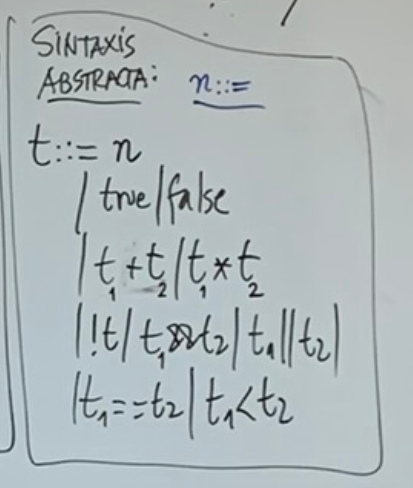 SINTAXIS
ABSTRACTA: n::=
t::= n
| true | false
| t₁ + t₂ | t₁ * t₂
| !t | t₁ && t₂ | t₁ || t₂ |
| t₁ == t₂ | t₁ < t₂